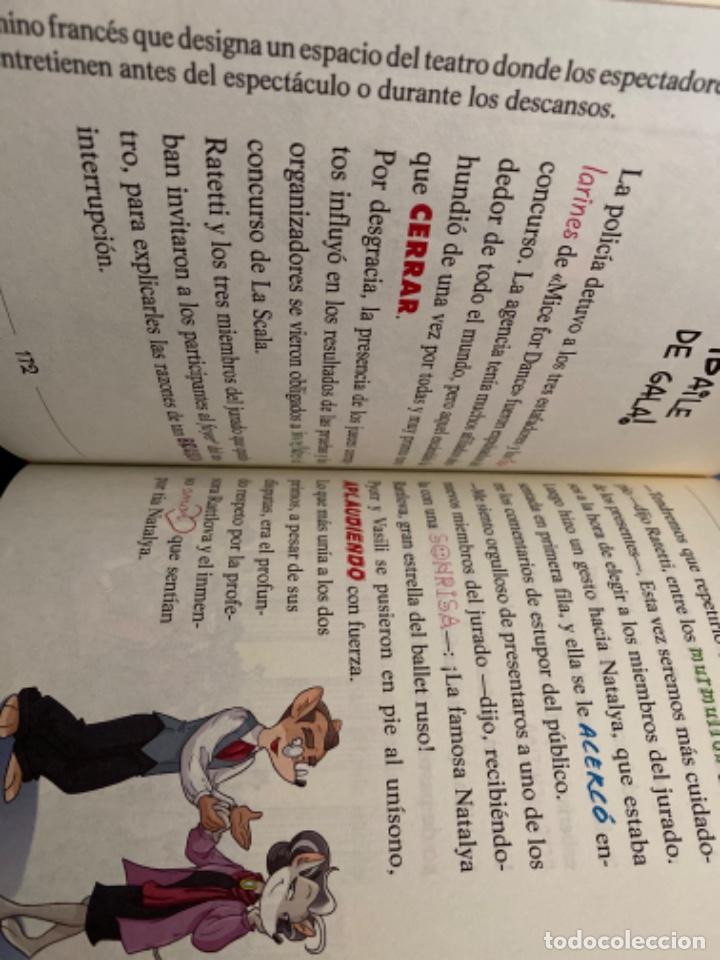 BAILE
DE GALA!
La policía detuvo a los tres estafadores y
larines de «Mice for Dance» fueron
concurso. La agencia tenía muchos
dedor de todo el mundo, pero aquel
hundió de una vez por todas y muy
que CERRAR.
Por desgracia, la presencia de los jueces
tos influyó en los resultados de las pruebas y
organizadores se vieron obligados a
concurso de La Scala.
Ratetti y los tres miembros del jurado que
ban invitaron a los participantes al foyer* del
tro, para explicarles las razones de tan
interrupción.
mino francés que designa un espacio del teatro donde los espectadores
entretienen antes del espectáculo o durante los descansos.
172
Tendremos que repetirlo
—dijo Ratetti, entre los murmullos
de los presentes—. Esta vez seremos más cuidado-
sos a la hora de elegir a los miembros del jurado.
Luego hizo un gesto hacia Natalya, que estaba
sentada en primera fila, y ella se le ACERCÓ en-
tre los comentarios de estupor del público.
—Me siento orgulloso de presentaros a uno de los
nuevos miembros del jurado —dijo, recibiéndo-
la con una SONRISA—: ¡La famosa Natalya
Ratilova, gran estrella del ballet ruso!
Pyotr y Vasili se pusieron en pie al unísono,
APLAUDIENDO con fuerza.
Lo que más unía a los dos
primos, a pesar de sus
disputas, era el profun-
do respeto por la profe-
sora Ratilova y el inmen-
so amor que sentían
por tía Natalya.
todocoleccion